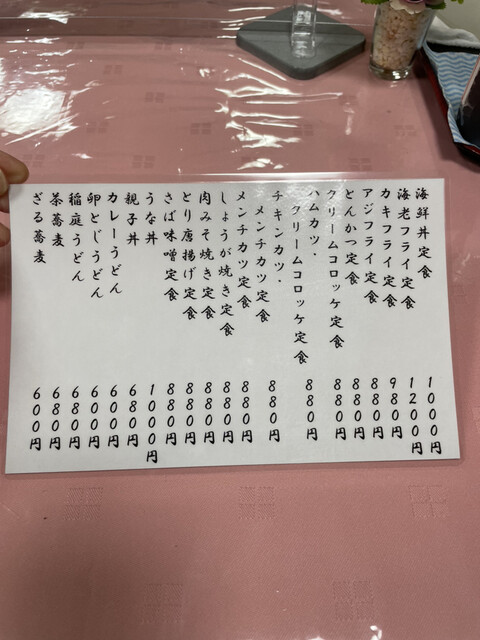 海鮮丼定食 1000円
海老フライ定食 1200円
カキフライ定食 980円
アジフライ定食 880円
とんかつ定食 880円
クリームコロッケ定食 880円
ハムカツ・
クリームコロッケ定食 880円
チキンカツ・
メンチカツ定食 880円
メンチカツ定食 880円
しょうが焼き定食 880円
肉みそ焼き定食 880円
とり唐揚げ定食 880円
さば味噌定食 880円
うな丼 1000円
親子丼 680円
カレーうどん 600円
卵とじうどん 600円
稲庭うどん 680円
茶蕎麦 680円
ざる蕎麦 600円